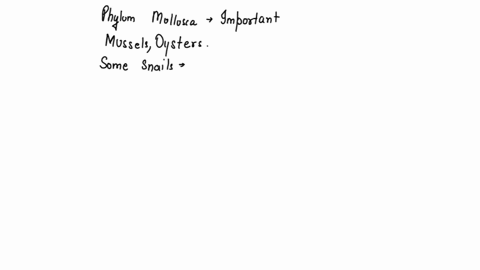 Phylum Mollusca → Important
Mussels, Oysters.
Some Snails →